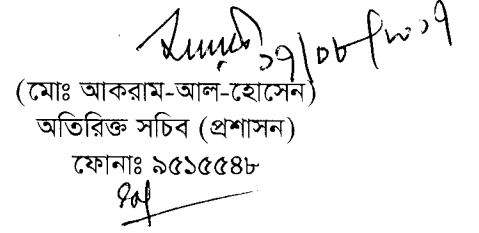 ১৭/০৮/২০১৭
(মোঃ আকরাম-আল-হোসেন)
অতিরিক্ত সচিব (প্রশাসন)
ফোনাঃ ৯৫১৫৫৪৮